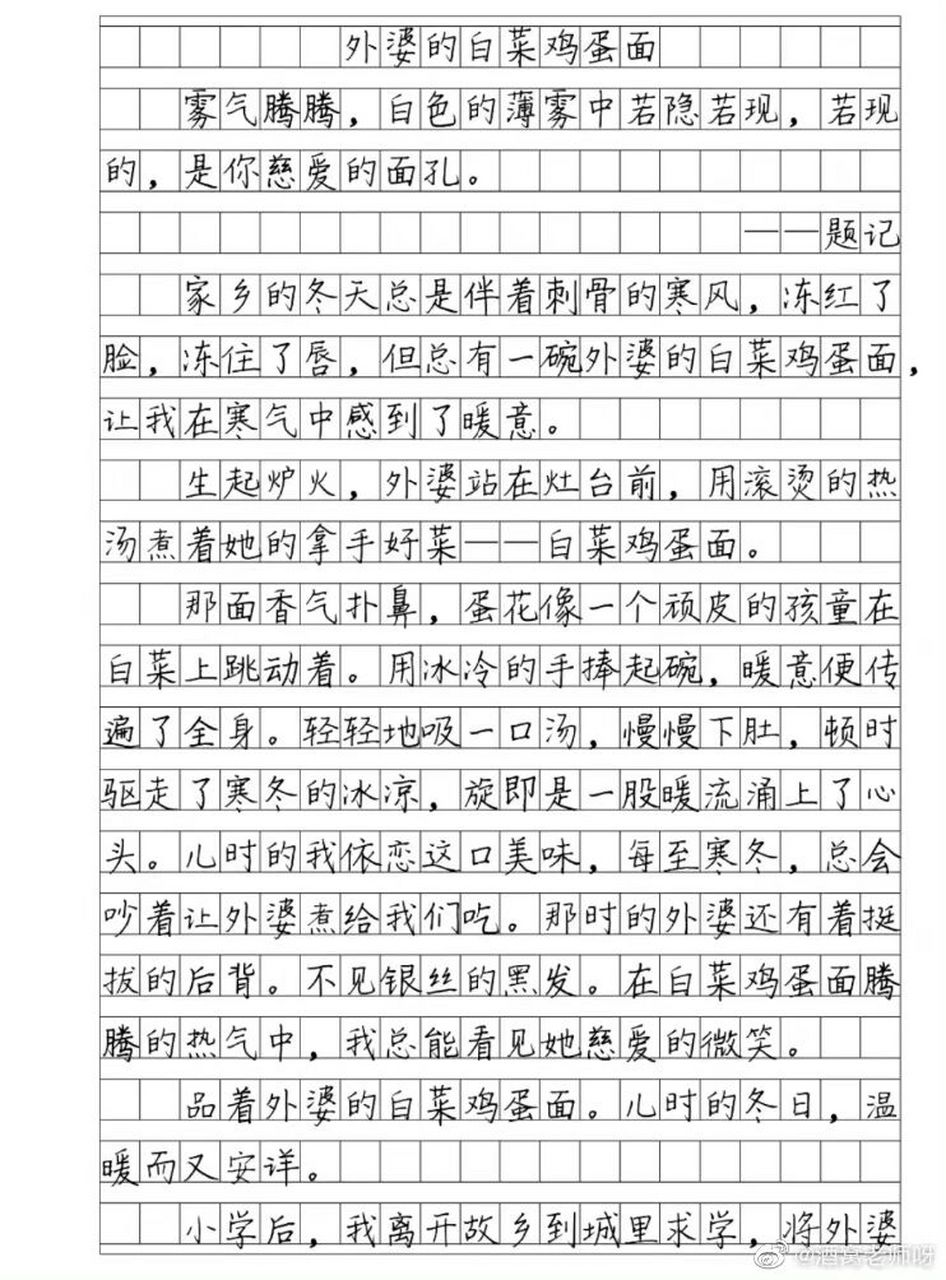 外婆的白菜鸡蛋面
雾气腾腾，白色的薄雾中若隐若现，若现
的，是你慈爱的面孔。
——题记
家乡的冬天总是伴着刺骨的寒风，冻红了
脸，冻住了唇，但总有一碗外婆的白菜鸡蛋面，
让我在寒气中感到了暖意。
生起炉火，外婆站在灶台前，用滚烫的热
汤煮着她的拿手好菜——白菜鸡蛋面。
那面香气扑鼻，蛋花像一个顽皮的孩童在
白菜上跳动着。用冰冷的手捧起碗，暖意便传
遍了全身。轻轻地吸一口汤，慢慢下肚，顿时
驱走了寒冬的冰凉，旋即是一股暖流涌上了心
头。儿时的我依恋这口美味，每至寒冬，总会
吵着让外婆煮给我们吃。那时的外婆还有着挺
拔的后背。不见银丝的黑发。在白菜鸡蛋面腾
腾的热气中，我总能看见她慈爱的微笑。
品着外婆的白菜鸡蛋面。儿时的冬日，温
暖而又安详。
小学后，我离开故乡到城里求学，将外婆
@酒窝老师呀